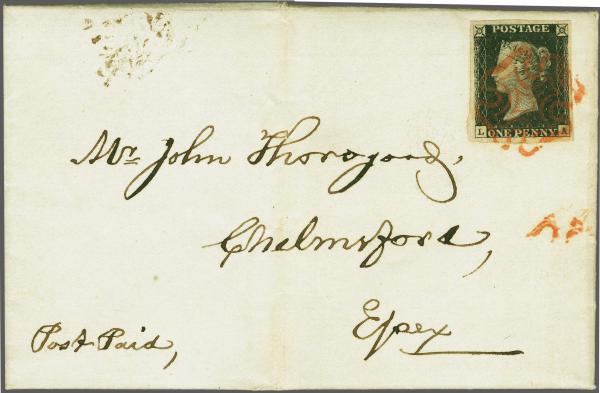 POSTAGE
L ONE PENNY A
Mr. John Thorogood,
Chelmsford,
Essex
Post Paid,